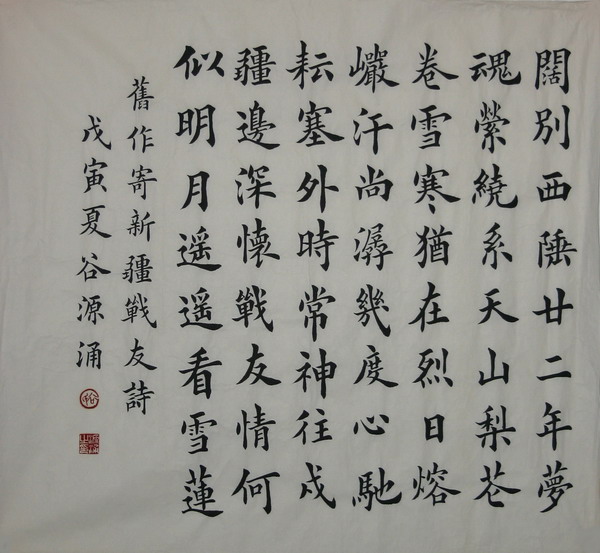 闊別西陲廿二年夢
魂縈繞系天山梨花
卷雪寒猶在烈日熔
巗汗尚潺幾度心馳
耘塞外時常神往戍
疆邊深懷戰友情何
似明月遥遥看雪蓮
舊作寄新疆戰友詩
戊寅夏谷源涌
谷